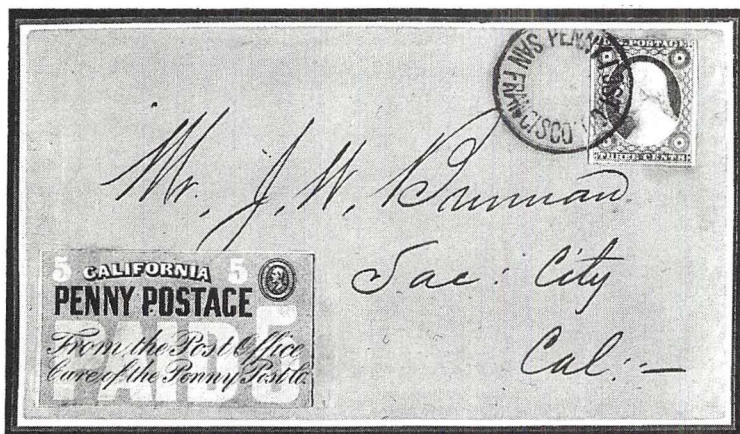 SAN FRANCISCO PENNY POST CO.
U.S. POSTAGE
THREE CENTS
Mr. J. W. Brennan
Sac: City
Cal:—
5 CALIFORNIA 5
PENNY POSTAGE
PAID 5
From the Post Office
Care of the Penny Post Co.